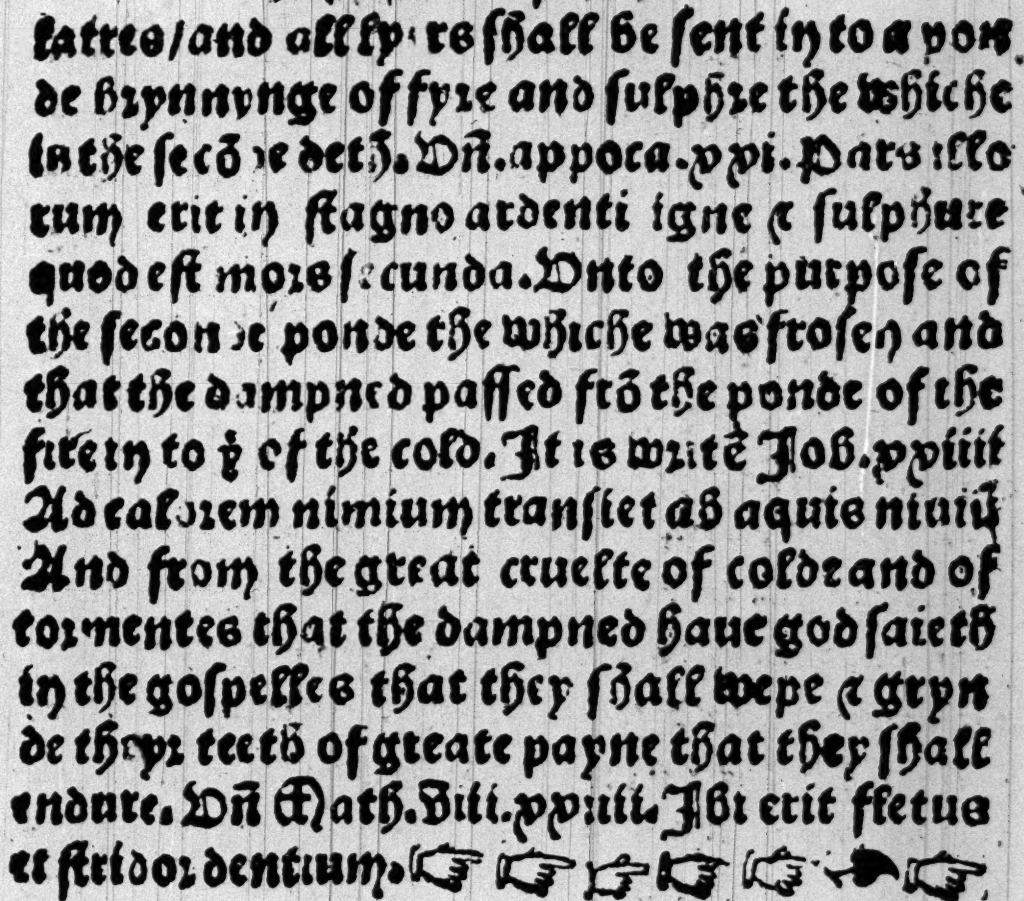 latres/and all lyers ſhall be ſent in to a pon
de brynnynge of fyre and ſulphre the whiche
is the ſecōde deth. Vn̄. appoca.xxi. Pars illo
rum erit in ſtagno ardenti igne ⁊ ſulphure
quod eſt mors ſecunda. Vnto the purpoſe of
the ſeconde ponde the whiche was froſen and
that the dampned paſſed frō the ponde of the
fire in to yͤ of the cold. It is writē Job.xxiiii
Ad calorem nimium tranſiet ab aquis niuiū
And from the great cruelte of colde and of
tormentes that the dampned haue god ſaieth
in the goſpelles that they ſhall wepe ⁊ gryn
de theyr teeth of greate payne that they ſhall
endure. Vn̄ Math.viii.xxiiii. Ibi erit fletus
et ſtridor dentium. ☞ ☞ ☞ ☞ ☞ ❧ ☞